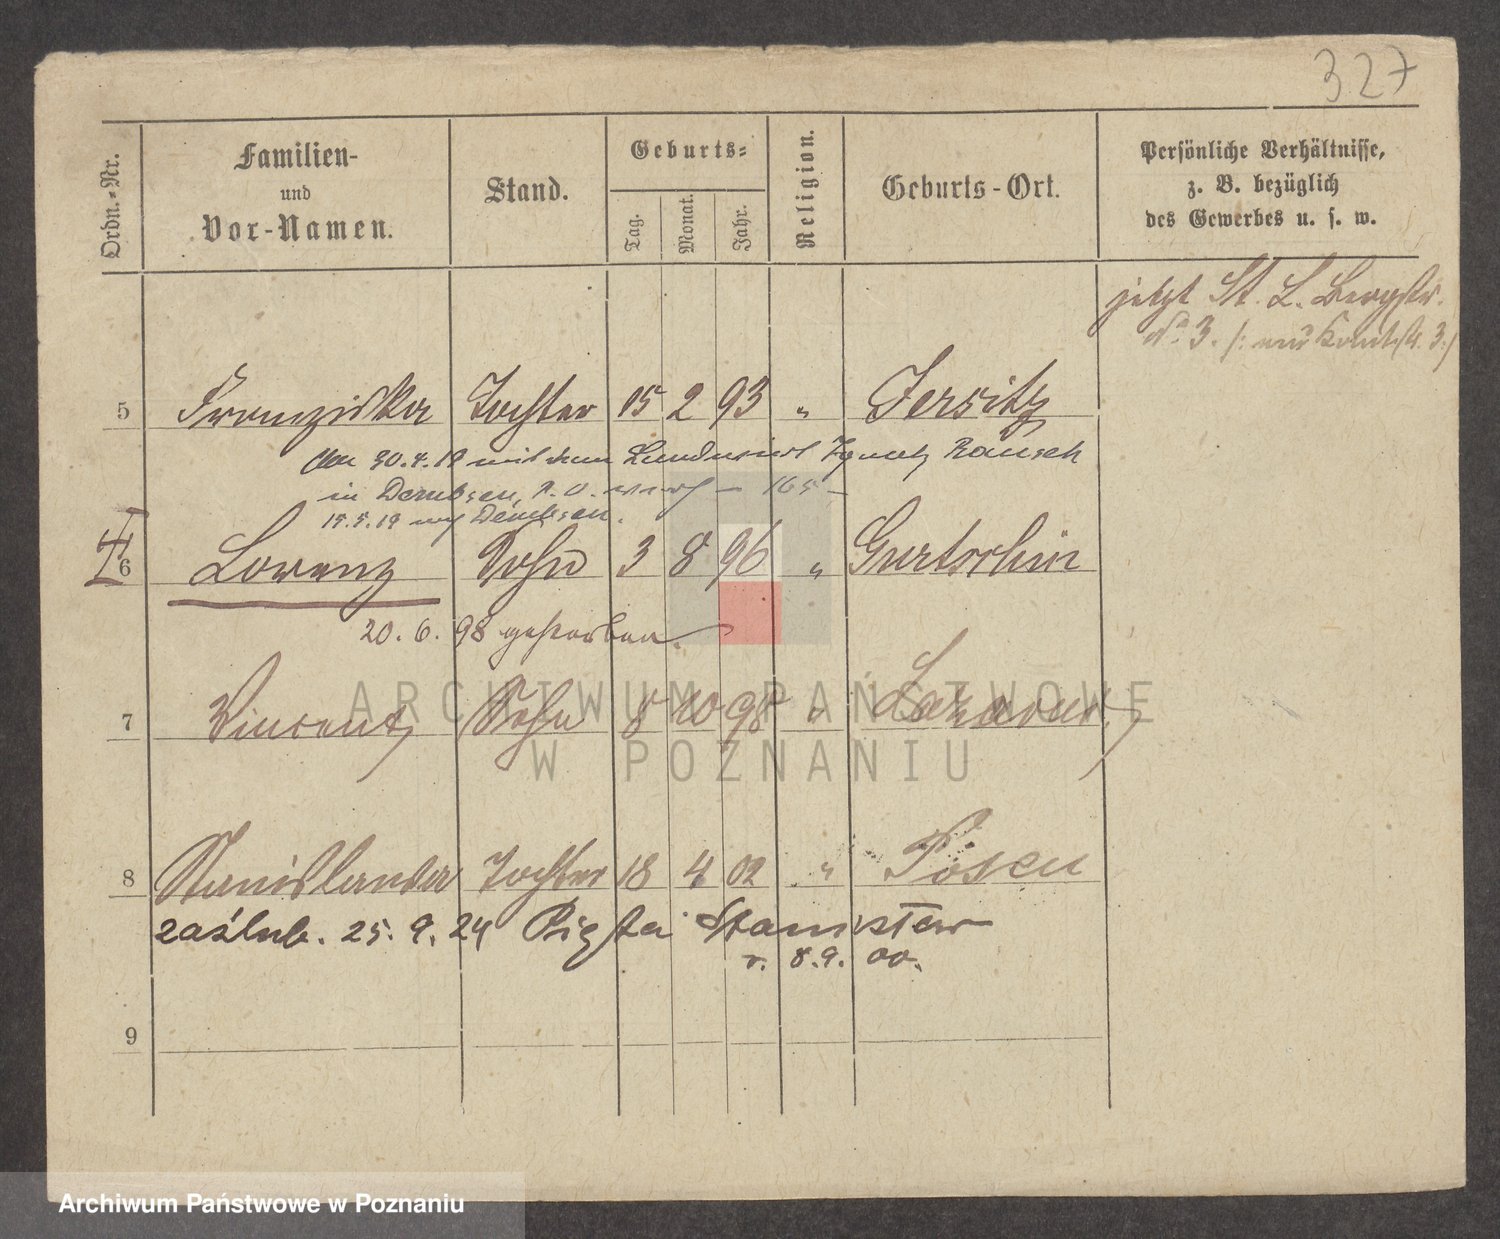 327
Ordn.-Nr.
Familien-
und
Vor-Namen.
Stand.
Geburts-
Tag.
Monat.
Jahr.
Religion.
Geburts-Ort.
Persönliche Verhältnisse,
z. B. bezüglich
des Gewerbes u. s. w.
jetzt St. L. Bergstr.
No 3.
5 Franziska Tochter 15 2 93 " Jersitz
30.4.19 mit dem Landwirt Ignatz
in Dembsen,
15.5.19 Dembsen.
6 Lorenz Sohn 3 8 96 " Gurtschin
20.6.98 gestorben.
7 Vincent Sohn 8 10 98 " Lazarus
8 Stanislawa Tochter 18 4 02 " Posen
zaślub. 25.9.24 Stanisław
r. 8.9.00.
9
ARCHIWUM PAŃSTWOWE
W POZNANIU
Archiwum Państwowe w Poznaniu